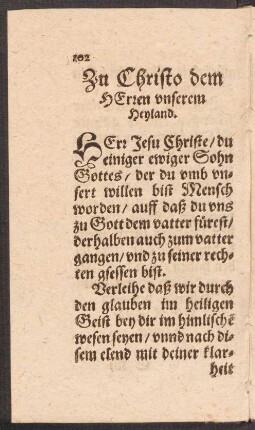 102
Zu Christo dem
HErren vnserem
Heyland.
HErr Jesu Christe/ du
einiger ewiger Sohn
Gottes/ der du vmb vn-
sert willen bist Mensch
worden/ auff daß du vns
zu Gott dem vatter fürest/
derhalben auch zum vatter
gangen/ vnd zu seiner rech-
ten gsessen bist.
Verleihe daß wir durch
den glauben im heiligen
Geist bey dir im himlischē
wesen seyen/ vnnd nach di-
sem elend mit deiner klar-
heit